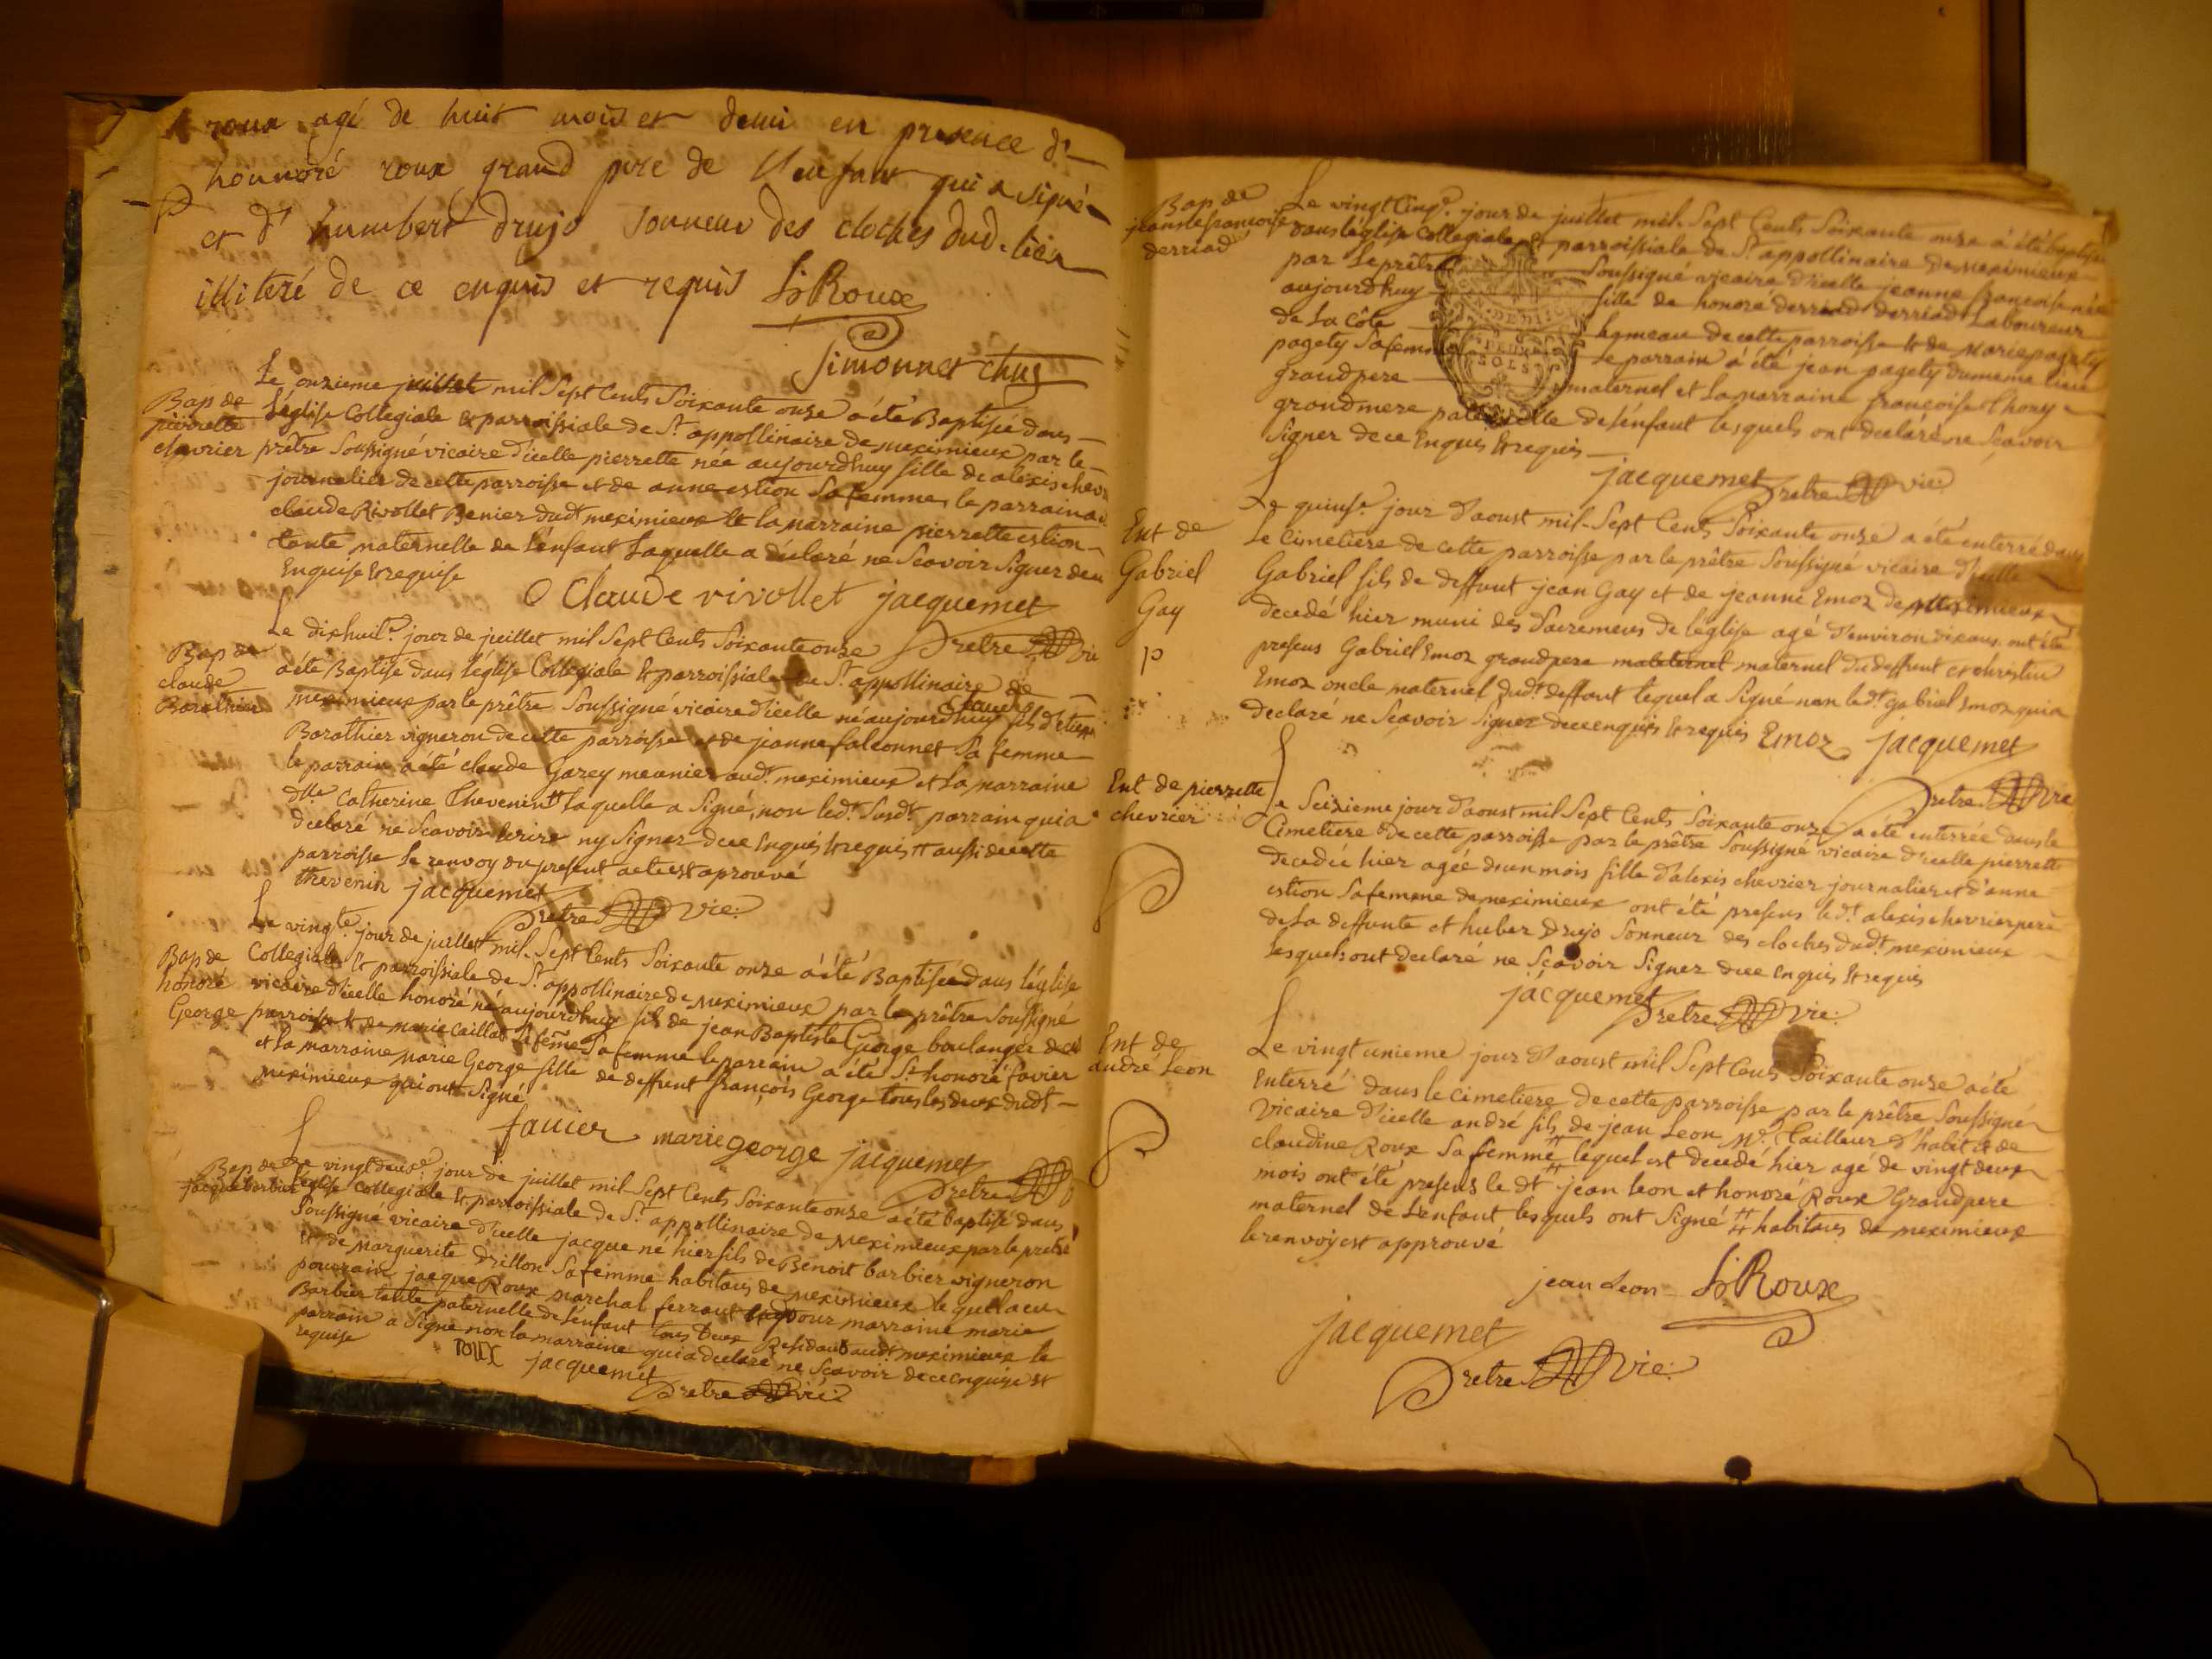 roux agé de huit mois et demi en presence de
honnoré roux grand pere de l'enfant qui a signé
et d' humbert drujo sonneur des cloches dud. lieu
illiteré de ce enquis et requis h Roux
Simonnet
Bap de
pierrette
chevrier
Le onzieme juillet mil Sept Cents Soixante onze a été Baptisée dans
l'église Collegiale & parroissiale de St. appollinaire de meximieux par le
prêtre Soussigné vicaire d'icelle pierrette née aujourdhuy fille de alexis chevr
journalier de cette parroisse et de anne estion Sa femme, le parrain a
claude Rivollet Benier dudt meximieux & la marraine pierrette estion
tante maternelle de l'énfant Laquelle a déclaré ne Scavoir Signer de
Enquise & requise
Claude rivollet jacquemet
Pretre vic
Bap de
claude
Barathier
Le dixhuite. jour de juillet mil Sept Cents Soixante onze
a été Baptisé dans l'église Collegiale & parroissiale de St. appollinaire de
meximieux par le prêtre Soussigné vicaire d'icelle né aujourdhuy fils d'
claude
Barathier vigneron de cette parroisse et de jeanne falconnet Sa femme
le parrain a été claude Garey meunier audt. meximieux et La marraine
dlle Catherine Thevenin # Laquelle a Signé, non ledt. Susdt. parrain qui a
déclaré ne Scavoir Ecrire ny Signer de ce Enquis & requis # aussi de cette
parroisse Le renvoy du present acte est aprouvé
thevenin jacquemet
Pretre vic:
Bap de
honoré
George
Le vingte. jour de juillet mil Sept Cents Soixante onze a été Baptisée dans l'église
Collegiale & parroissiale de St. appollinaire de Meximieux par le prêtre Soussigné
vicaire d'icelle honoré né aujourdhuy fils de jean Baptiste George boulanger de
parroisse & de marie caillat Sa femme le parrain a été Sr. honoré favier
et La marraine marie George fille de deffunt françois George tous les deux dudt
meximieux qui ont Signé
favier marie george jacquemet
Pretre
Bap de
jacque barbier
Le vingt deuxe. jour de juillet mil Sept Cents Soixante onze a été baptisé dans
l'église Collegiale & parroissiale de St. appollinaire de Meximieux par le pretre
Soussigné vicaire d'icelle jacque né hier fils de Benoit barbier vigneron
& de Marguerite drillon Sa femme habitans de meximieux lequel a eu
pour parain jacque Roux marchal ferrant & pour marraine marie
Barbier tante paternelle de l'énfant tous deux Residants audt meximieux le
parrain a Signé non la marraine qui a declaré ne Scavoir de ce enquise et
requise
roux jacquemet
Pretre vic:
Bap de
jeanne francoise
derriad
Le vingt Cinqe. jour de juillet mil Sept Cents Soixante onze a été baptisée
dans l'église Collegiale & parroissiale de St. appollinaire de meximieux
par Le prêtre Soussigné vicaire d'icelle jeanne françoise née
aujourdhuy fille de honoré derriad Laboureur
de La Côte hameau de cette parroisse & de Marie pagely
pagely Sa femme le parrain a été jean pagely du meme lieu
grand pere maternel et La marraine françoise Thony
grand mere paternelle de l'énfant lesquels ont declaré ne Scavoir
Signer de ce Enquis & requis
DEUX
SOLS
jacquemet
Pretre vic:
Ent de
Gabriel
Gay
p
Le quinse. jour d'aoust mil Sept Cents Soixante onze a été enterré dans
Le Cimetiere de cette parroisse par le prêtre Soussigné vicaire d'icelle
Gabriel fils de deffunt jean Gay et de jeanne Emoz de meximieux
decedé hier muni des Sacremens de l'église agé d'environ dix ans, ont été
presens Gabriel Emoz grand pere maternel du deffunt et christin
Emoz oncle maternel dudt. deffunt lequel a Signé non ledt. gabriel Emoz qui a
declaré ne Scavoir Signer de ce enquis & requis Emoz jacquemet
Pretre vic
Ent de pierrette
chevrier
Le Seizieme jour d'aoust mil Sept Cents Soixante onze a été enterrée dans le
Cimetiere de cette parroisse par le prêtre Soussigné vicaire d'icelle pierrette
decedée hier agée d'un mois fille d'alexis chevrier journalier et d'anne
estion Sa femme de meximieux ont été presens ledt. alexis chevrier pere
de La deffunte et huber Drujo Sonneur des cloches dudt meximieux
Lesquels ont declaré ne Scavoir Signer de ce enquis & requis
jacquemet
Pretre vic:
Ent de
andré Leon
Le vingt unieme jour d'aoust mil Sept Cents Soixante onze a été
Enterré dans le cimetiere de cette parroisse par le prêtre Soussigné
Vicaire d'icelle andré fils de jean Leon Me. Tailleur d'habit & de
claudine Roux Sa femme # lequel est decedé hier agé de vingt deux
mois ont été presens le dt # jean Leon et honoré Roux Grand pere
maternel de l'enfant lesquels ont Signé # habitans de meximieux
le renvoy est approuvé
jean Leon h Roux
jacquemet
Pretre vic: